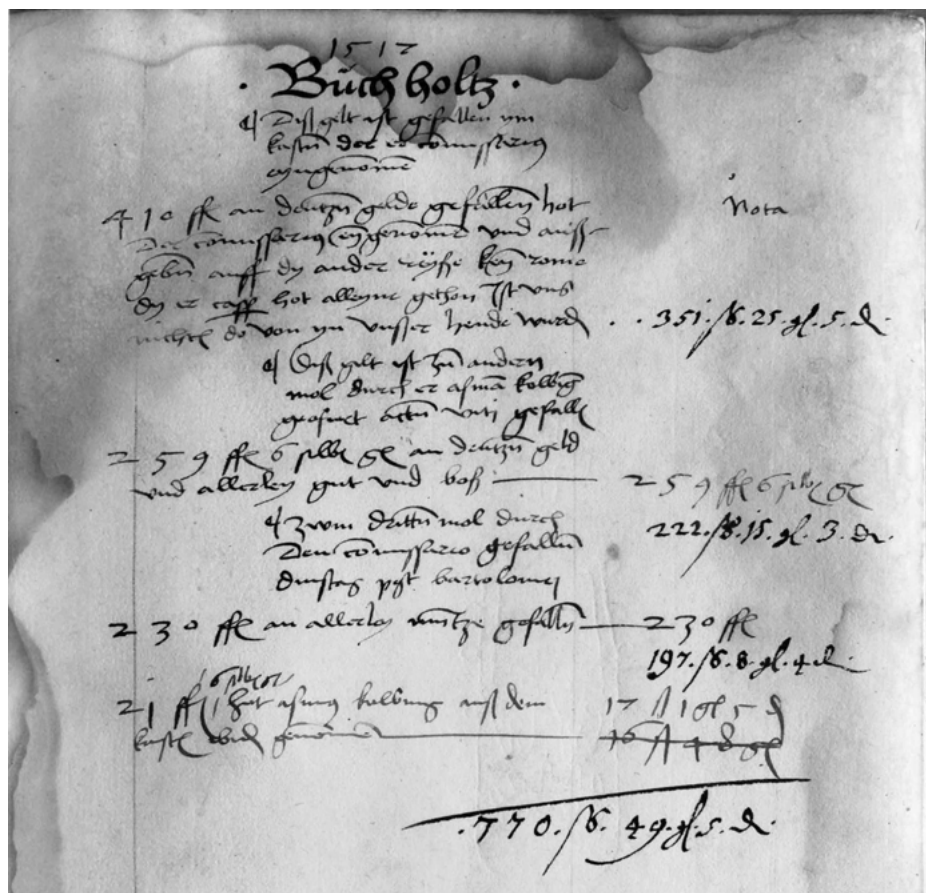 1517
· Buchholtz ·
Diß gelt ist gefallen ym
kastn der er comissarius
eyngenomē
410 ffl an deutzn gelde gefallen hot
Der comissarius eyngenomē und auß-
gebn auff dy ander reyße keyn rome
dy er hot alleyne gethon Ist uns
nichts do von yn unser hende wurdn
Nota
. . 351 . ßo . 25 . gl . 5 . d
Diß gelt ist zum andern
mol durch er kolbing
geofnet gefalln
259 ffl 6 silbr gr an deutzn geld
und allerley gut und boß
259 ffl 6 silbr gr
222 . ßo . 15 . gl . 3 . d
Zwm dritten mol durch
Den comissario gefalln
dinstag post bartolomei
230 ffl an allerley muntze gefalln
230 ffl
197 . ßo . 8 . gl . 4 d .
21 ffl hat kolbing auß dem
kastn genomen
17 ß 1 gl 5 d
. 770 . ßo . 49 . gl . 5 . d .